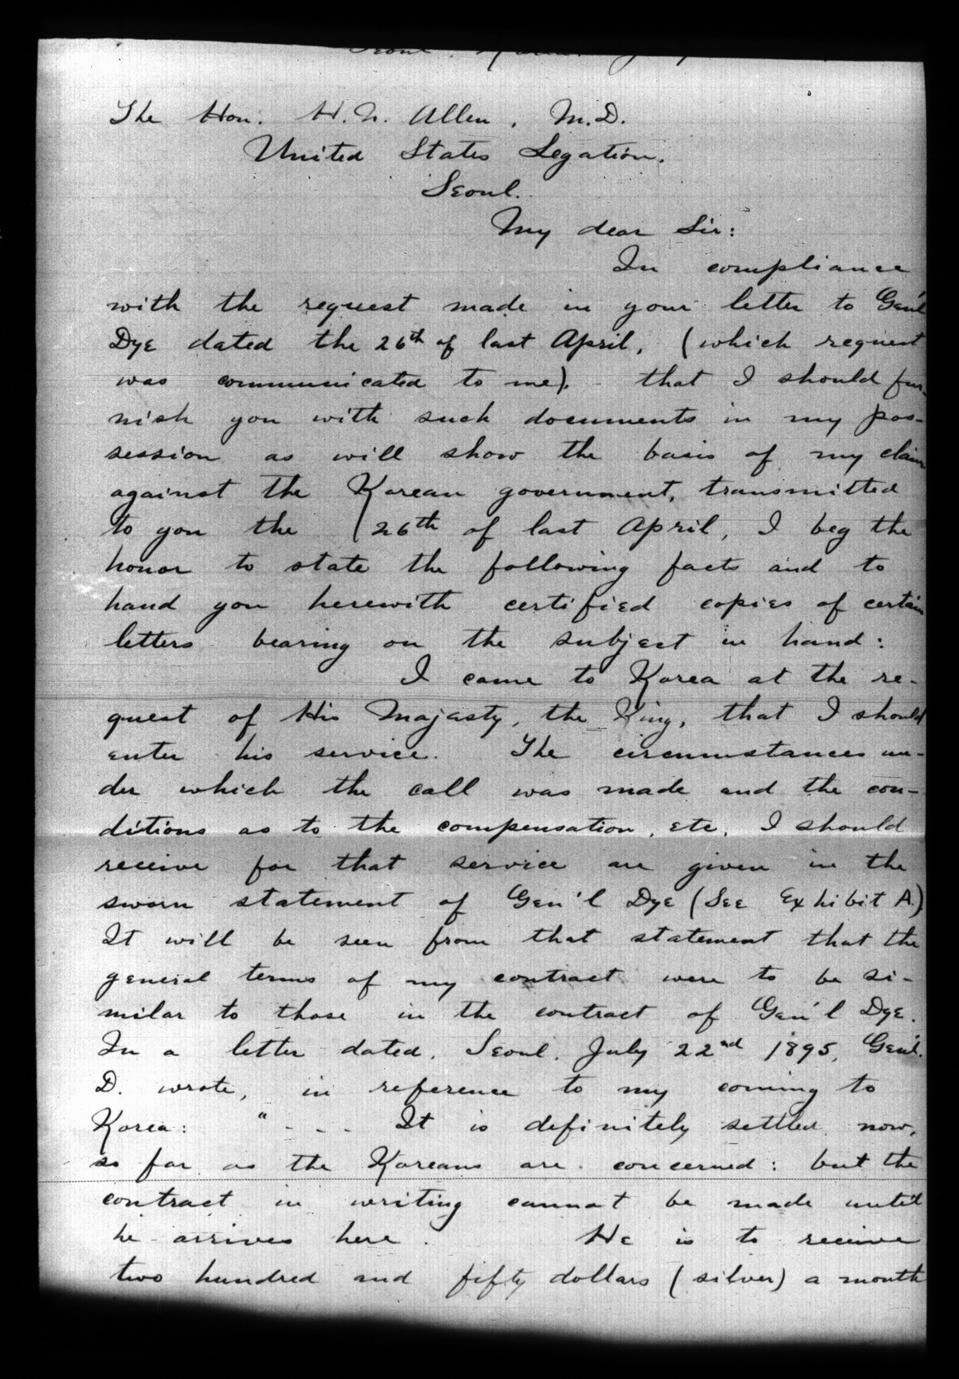 Seoul, Korea,
The Hon. H. N. Allen, M.D.
United States Legation.
Seoul.
My dear Sir:
In compliance
with the request made in your letter to Gen'l
Dye dated the 26th of last April, (which request
was communicated to me), that I should fur-
nish you with such documents in my pos-
session as will show the basis of my claim
against the Korean government, transmitted
to you the (26th of last April, I beg the
honor to state the following facts and to
hand you herewith certified copies of certain
letters bearing on the subject in hand:
I came to Korea at the re-
quest of His Majasty, the King, that I should
enter his service. The circumstances un-
der which the call was made and the con-
ditions as to the compensation, etc, I should
receive for that service are given in the
sworn statement of Gen'l Dye (See Exhibit A.)
It will be seen from that statement that the
general terms of my contract were to be si-
milar to those in the contract of Gen'l Dye.
In a letter dated, Seoul, July 22nd 1895, Gen'l.
D. wrote, in reference to my coming to
Korea: " - - - It is definitely settled now,
so far as the Koreans are concerned: but the
contract in writing cannot be made until
he arrives here. He is to receive
two hundred and fifty dollars (silver) a month